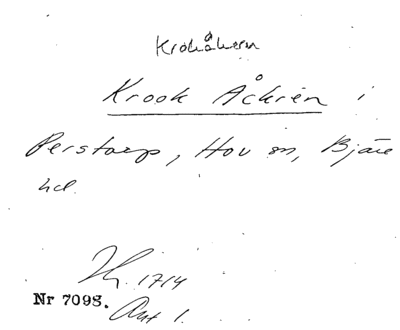 Krokåkern
Krook Åckren i
Perstorp, Hov sn, Bjäre
hd.
1714
Nr 7098.
Akt 1.